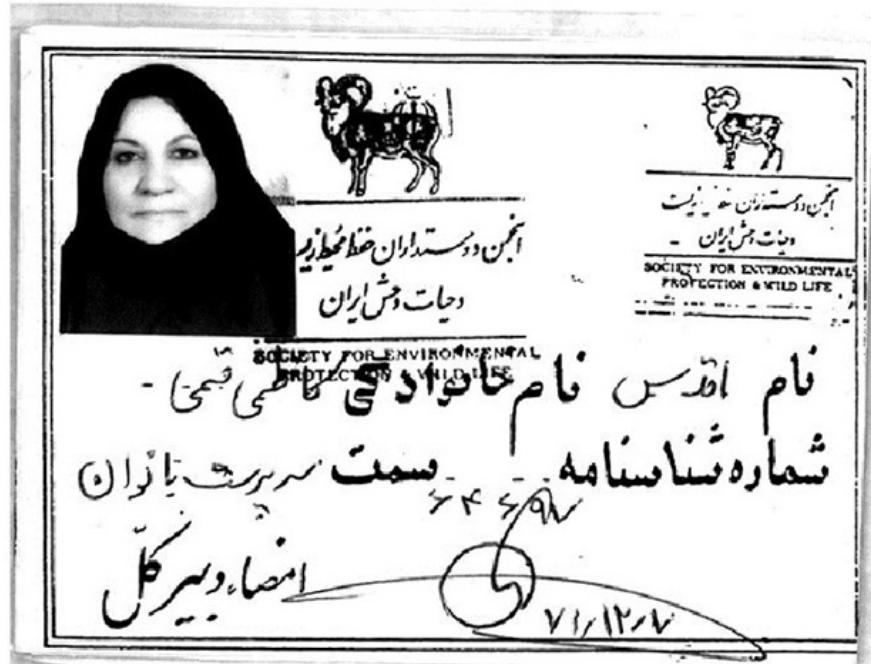 انجمن دوستداران حفظ محیط زیست
و حیات وحش ایران
SOCIETY FOR ENVIRONMENTAL
PROTECTION & WILD LIFE
انجمن دوستداران حفظ محیط زیس
و حیات وحش ایران
SOCIETY FOR ENVIRONMENTAL
PROTECTION & WILD LIFE
نام اقدس نام خانوادگی کاظمی قمی
شماره شناسنامه سمت سرپرست بانوان
امضاء دبیر کل
۷۱/۱۲/۷